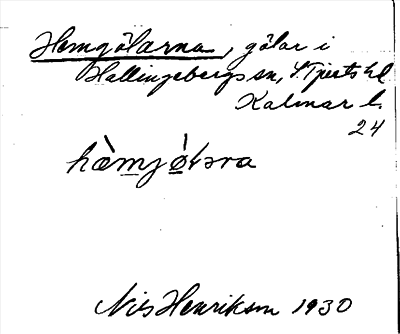 Hemgölarna, gölar i
Hallingebergs sn, S. Tjusts hd
Kalmar l.
24
hæ̀mjø̀ləra
Nils Henrikson 1930